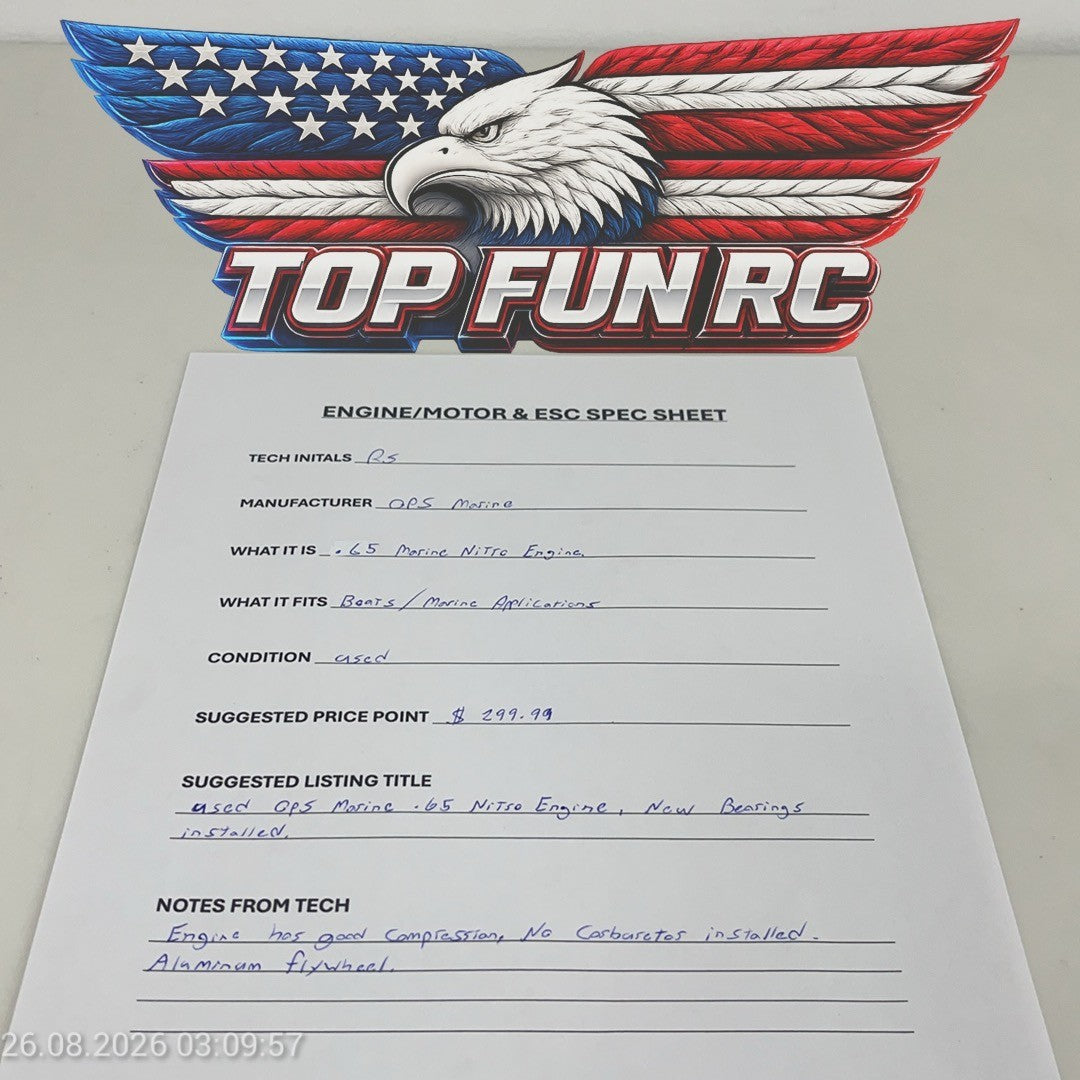 TOP FUN RC
ENGINE/MOTOR & ESC SPEC SHEET
TECH INITALS RS
MANUFACTURER OPS Marine
WHAT IT IS .65 Marine Nitro Engine.
WHAT IT FITS Boats / Marine Applications
CONDITION used
SUGGESTED PRICE POINT $ 299.99
SUGGESTED LISTING TITLE
used OPS Marine .65 Nitro Engine, New Bearings
installed.
NOTES FROM TECH
Engine has good compression, No Carburetor installed.
Aluminum flywheel.
26.08.2026 03:09:57